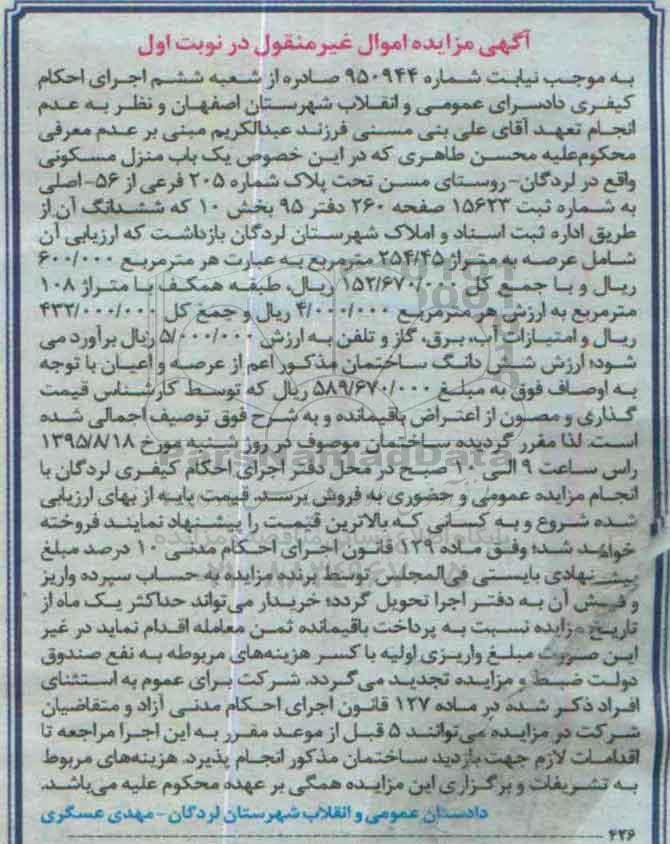 آگهی مزایده اموال غیرمنقول در نوبت اول
به موجب نیابت شماره ۹۵۰۹۴۴ صادره از شعبه ششم اجرای احکام
کیفری دادسرای عمومی و انقلاب شهرستان اصفهان و نظر به عدم
انجام تعهد آقای علی بنی مسنی فرزند عبدالکریم مبنی بر عدم معرفی
محکوم‌علیه محسن طاهری که در این خصوص یک باب منزل مسکونی
واقع در لردگان- روستای مسن تحت پلاک شماره ۲۰۵ فرعی از ۵۶- اصلی
به شماره ثبت ۱۵۶۲۳ صفحه ۲۶۰ دفتر ۹۵ بخش ۱۰ که ششدانگ آن از
طریق اداره ثبت اسناد و املاک شهرستان لردگان بازداشت که ارزیابی آن
شامل عرصه به متراژ ۲۵۴/۴۵ مترمربع به عبارت هر مترمربع ۶۰۰/۰۰۰
ریال و با جمع کل ۱۵۲/۶۷۰/۰۰۰ ریال، طبقه همکف با متراژ ۱۰۸
مترمربع به ارزش هر مترمربع ۴/۰۰۰/۰۰۰ ریال و جمع کل ۴۳۲/۰۰۰/۰۰۰
ریال و امتیازات آب، برق، گاز و تلفن به ارزش ۵/۰۰۰/۰۰۰ ریال برآورد می
شود؛ ارزش شش دانگ ساختمان مذکور اعم از عرصه و اعیان با توجه
به اوصاف فوق به مبلغ ۵۸۹/۶۷۰/۰۰۰ ریال که توسط کارشناس قیمت
گذاری و مصون از اعتراض باقیمانده و به شرح فوق توصیف اجمالی شده
است. لذا مقرر گردیده ساختمان موصوف در روز شنبه مورخ ۱۳۹۵/۸/۱۸
راس ساعت ۹ الی ۱۰ صبح در محل دفتر اجرای احکام کیفری لردگان با
انجام مزایده عمومی و حضوری به فروش برسد. قیمت پایه از بهای ارزیابی
شده شروع و به کسانی که بالاترین قیمت را پیشنهاد نمایند فروخته
خواهد شد؛ وفق ماده ۱۲۹ قانون اجرای احکام مدنی ۱۰ درصد مبلغ
پیشنهادی بایستی فی‌المجلس توسط برنده مزایده به حساب سپرده واریز
و فیش آن به دفتر اجرا تحویل گردد؛ خریدار می‌تواند حداکثر یک ماه از
تاریخ مزایده نسبت به پرداخت باقیمانده ثمن معامله اقدام نماید در غیر
این صورت مبلغ واریزی اولیه با کسر هزینه‌های مربوطه به نفع صندوق
دولت ضبط و مزایده تجدید می‌گردد. شرکت برای عموم به استثنای
افراد ذکر شده در ماده ۱۲۷ قانون اجرای احکام مدنی آزاد و متقاضیان
شرکت در مزایده می‌توانند ۵ قبل از موعد مقرر به این اجرا مراجعه تا
اقدامات لازم جهت بازدید ساختمان مذکور انجام پذیرد. هزینه‌های مربوط
به تشریفات و برگزاری این مزایده همگی بر عهده محکوم علیه می‌باشد.
دادستان عمومی و انقلاب شهرستان لردگان - مهدی عسگری
۴۲۶
ParsNamadData